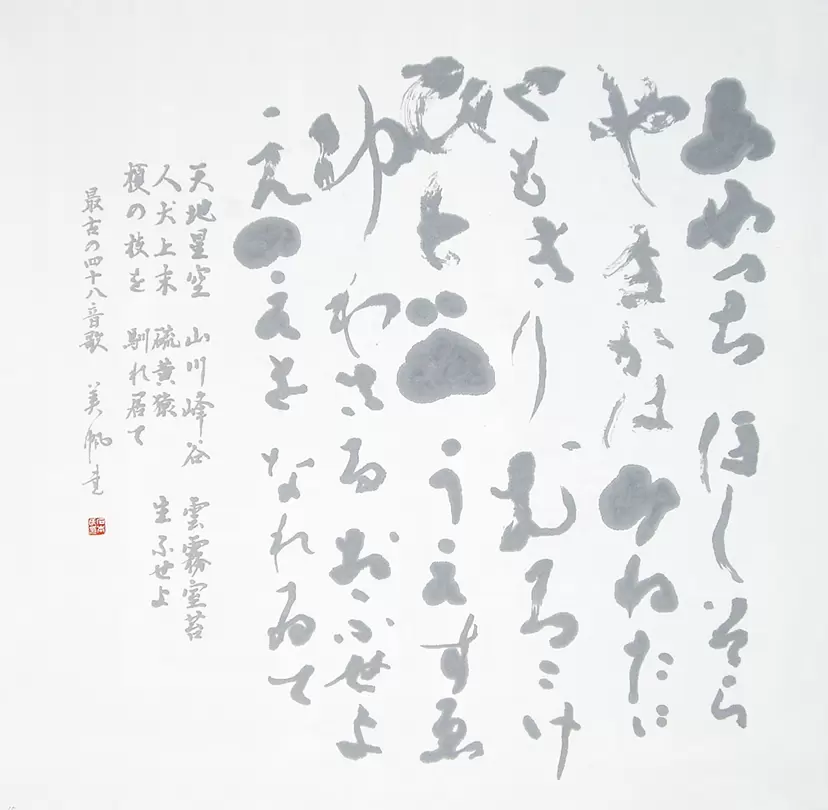 あめつち ほしそら
やまかは みねたに
くもきり むろこけ
ひといぬ うえすゑ
ゆわさる おふせよ
えのえを なれゐて
天地星空 山川峰谷 雲霧室苔
人犬上末 硫黄猿 生ふせよ
榎の枝を 馴れ居て
最古の四十八音歌 美帆